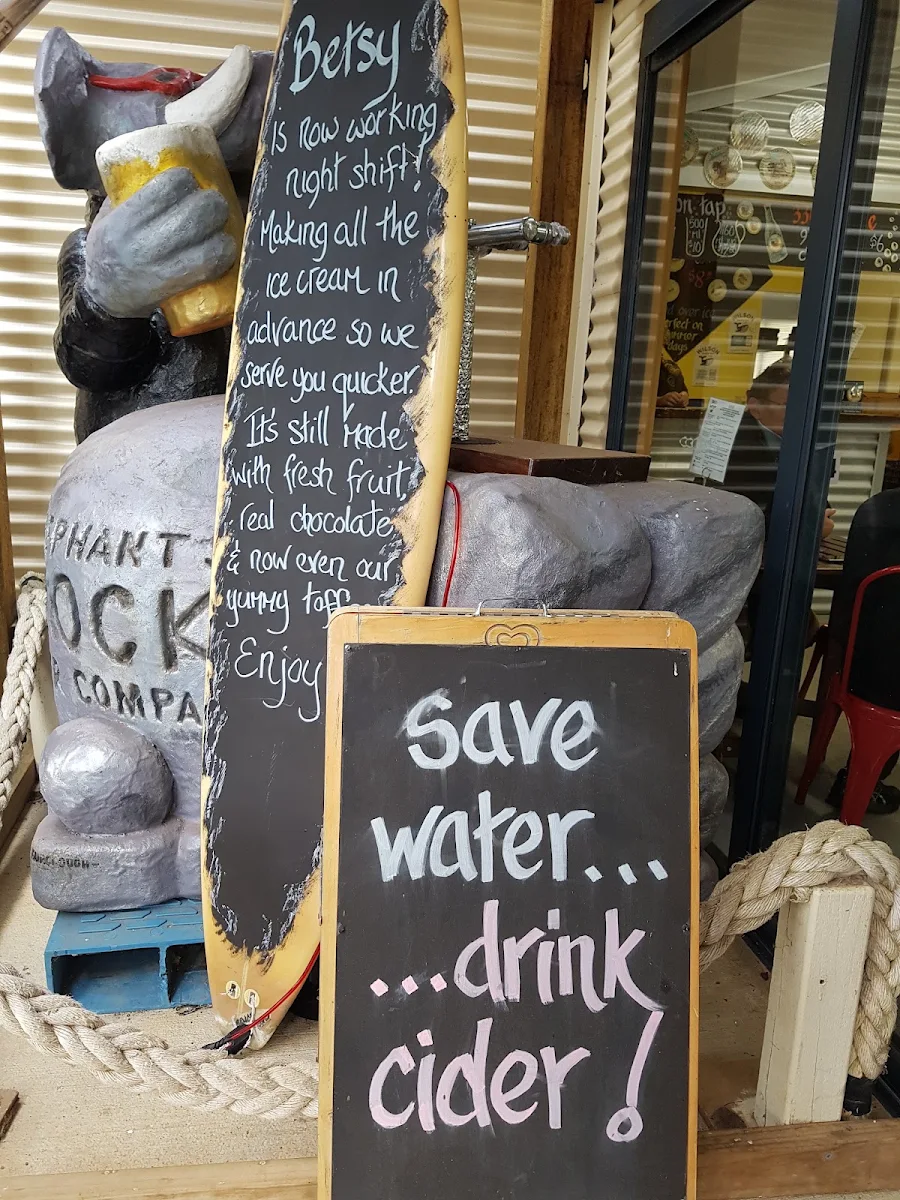 Betsy
is now working
night shift!
Making all the
ice cream in
advance so we
serve you quicker.
It's still Made
with fresh fruit,
real chocolate
& now even our
yummy toff
Enjoy
save
water...
...drink
cider!
PHANT
OCK
COMPA
on tap